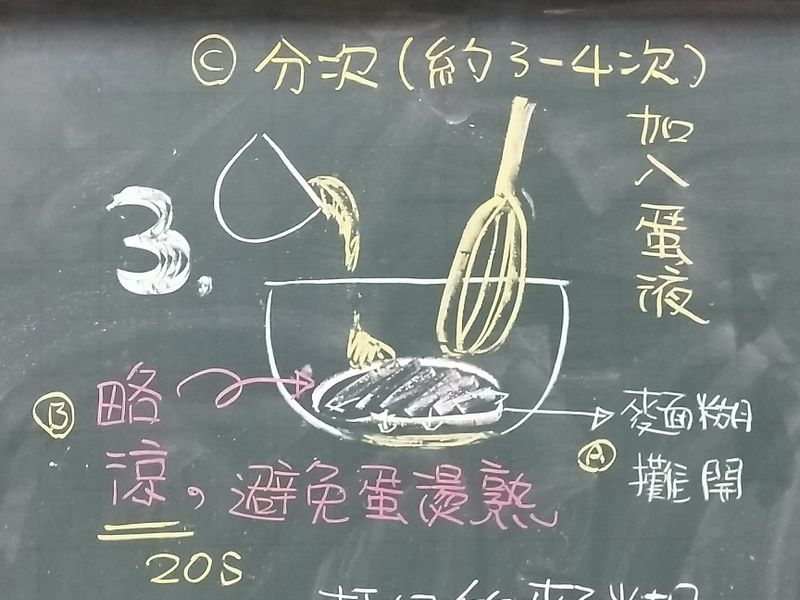 Ⓒ 分次(約3-4次)
加入蛋液
3.
Ⓑ 略
涼,避免蛋燙熟
20S
Ⓐ 麵面糊
攤開